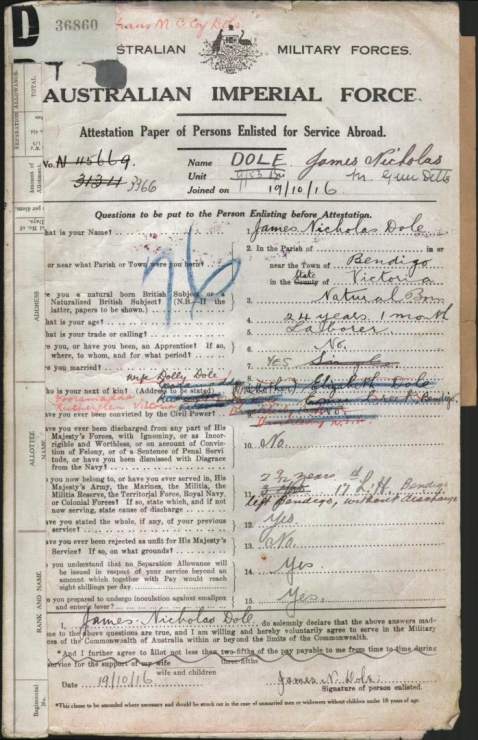 36860
AUSTRALIAN MILITARY FORCES.
AUSTRALIAN IMPERIAL FORCE.
Attestation Paper of Persons Enlisted for Service Abroad.
No. N 45669. Name DOLE James Nicholas
3366 Unit
Joined on 19/10/16
Questions to be put to the Person Enlisting before Attestation.
hat is your Name? 1. James Nicholas Dole
2. In the Parish of in or
or near what Parish or Town were you born? near the Town of Bendigo
in the County of State Victoria
re you a natural born British Subject or a
Naturalized British Subject? (N.B.—If the
latter, papers to be shown.) 3. Natural Born
hat is your age? 4. 24 years 1 month
hat is your trade or calling? 5. Labourer
re you, or have you been, an Apprentice? If so,
where, to whom, and for what period? 6. No.
re you married? 7. Yes Single
Mrs Dolly Dole
ho is your next of kin? (Address to be stated) 8. (Mother) Elizabeth Dole
Rutherglen Victoria Bendigo
ave you ever been convicted by the Civil Power? 9. No
ave you ever been discharged from any part of His
Majesty's Forces, with Ignominy, or as Incor-
rigible and Worthless, or on account of Convic-
tion of Felony, or of a Sentence of Penal Servi-
tude, or have you been dismissed with Disgrace
from the Navy? 10. No.
o you now belong to, or have you ever served in, His
Majesty's Army, the Marines, the Militia, the
Militia Reserve, the Territorial Force, Royal Navy,
or Colonial Forces? If so, state which, and if not
now serving, state cause of discharge 11. 2 1/2 years 17 L.H. Bendigo
left Bendigo, without discharge
ave you stated the whole, if any, of your previous
service? 12. Yes.
ave you ever been rejected as unfit for His Majesty's
Service? If so, on what grounds? 13. No.
o you understand that no Separation Allowance will
be issued in respect of your service beyond an
amount which together with Pay would reach
eight shillings per day? 14. Yes.
re you prepared to undergo inoculation against smallpox
and enteric fever? 15. Yes.
I, James Nicholas Dole, do solemnly declare that the above answers mad-
me to the above questions are true, and I am willing and hereby voluntarily agree to serve in the Military
es of the Commonwealth of Australia within or beyond the limits of the Commonwealth.
*And I further agree to allot not less than two-fifths of the pay payable to me from time to time during
three-fifths
service for the support of my wife
wife and children
Date 19/10/16 James N. Dole
Signature of person enlisted.
*This clause to be amended where necessary and should be struck out in the case of unmarried men or widowers without children under 18 years of age.
76
SEPARATION ALLOWANCE.
TOTAL
Amount of Allotment.
ADDRESS
ALLOTTEE
NAME
RANK AND NAME
Regimental No.